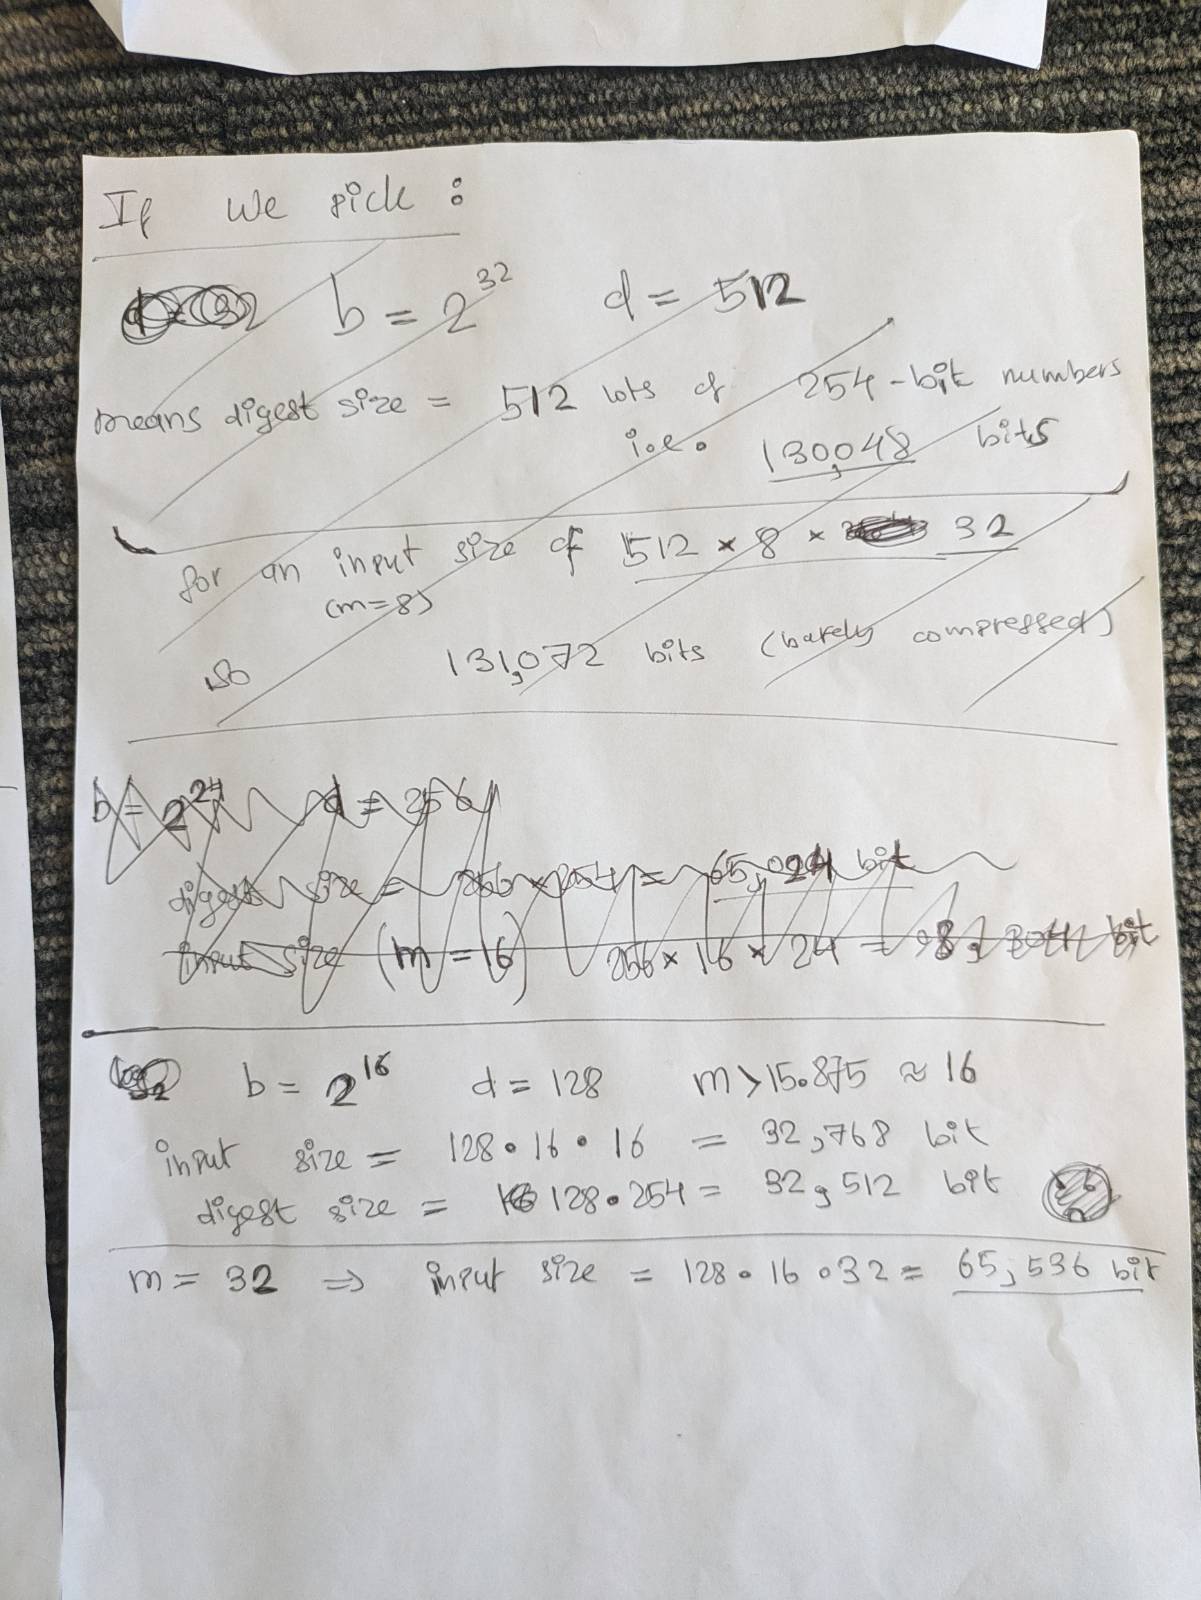 If we pick :
b = 2^32 d = 512
means digest size = 512 lots of 254-bit numbers
i.e. 130,048 bits
for an input size of 512 × 8 × 32
(m=8)
so 131,072 bits (barely compressed)
b = 2^24 d = 256
digest size = 256 × 254 = 65,024 bit
input size (m = 16) 256 × 16 × 24 = 98,304 bit
b = 2^16 d = 128 m > 15.875 ≈ 16
input size = 128 • 16 • 16 = 32,768 bit
digest size = 128 • 254 = 32,512 bit
m = 32 ⇒ input size = 128 • 16 • 32 = 65,536 bit